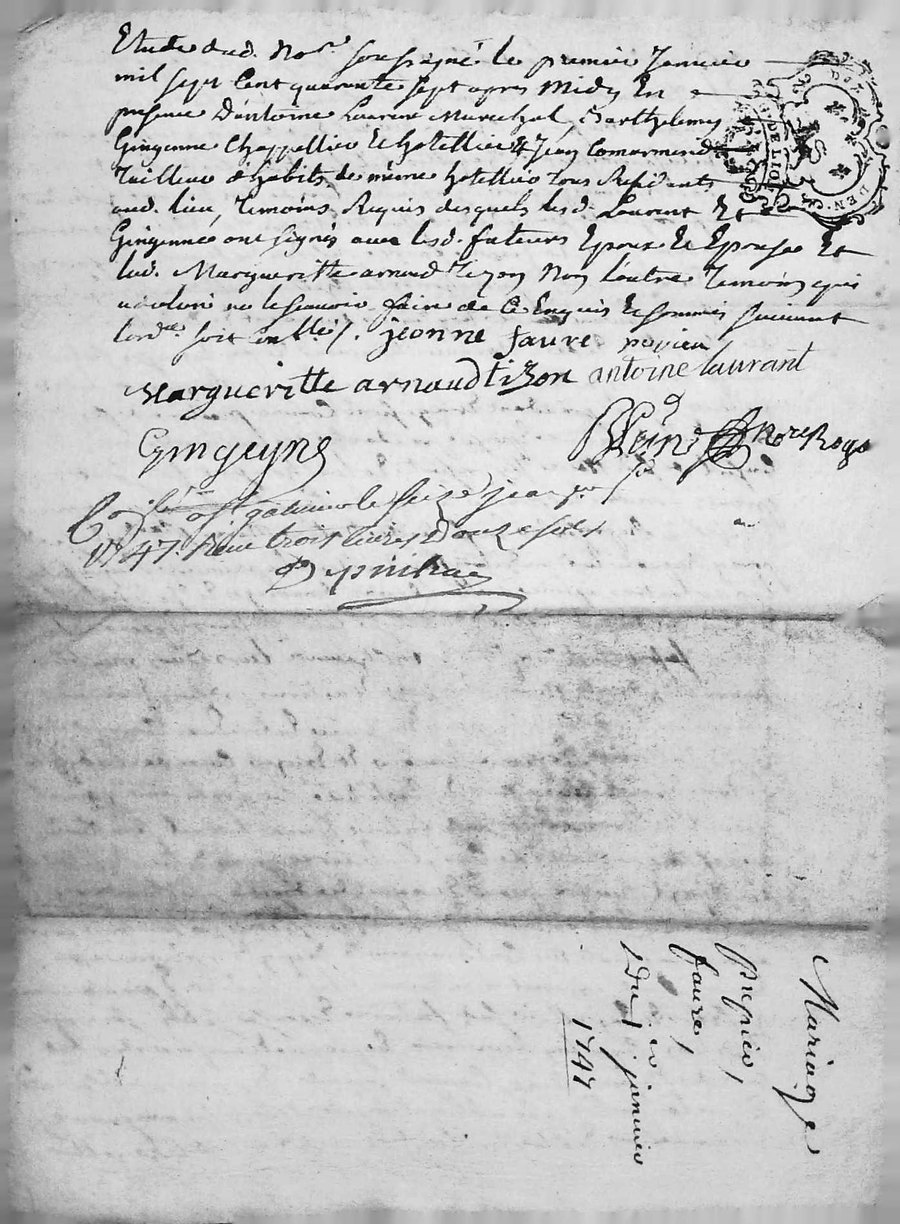 Etude dud. Nore. soussigné le premier Janvier
mil sept Cent quarante sept apres Midy En
présence D'antoine Laurent Marechal, Barthelemy
Gingenne Chappellier Et hotellier & Jean
Tailleur d'habits de même hotellier tous Residents
aud. lieu, temoins Requis desquels lesd. Laurent Et
Gingenne ont signés avec lesd. futeurs Epoux Et Epouse Et
lad. Margueritte arnaud Tizon Non l'autre temoin qui
a declaré ne le scavoir faire de ce Enquis Et sommés suivant
lord.ce soit
jeonne faure
Margueritte arnaudtizon antoine laurant
Gingeyne
nore Roya
le seize jean.er
1747 Reçu trois livres Douze sols
Mariage
faure,
Du 1.er janvier
1747
DE LION